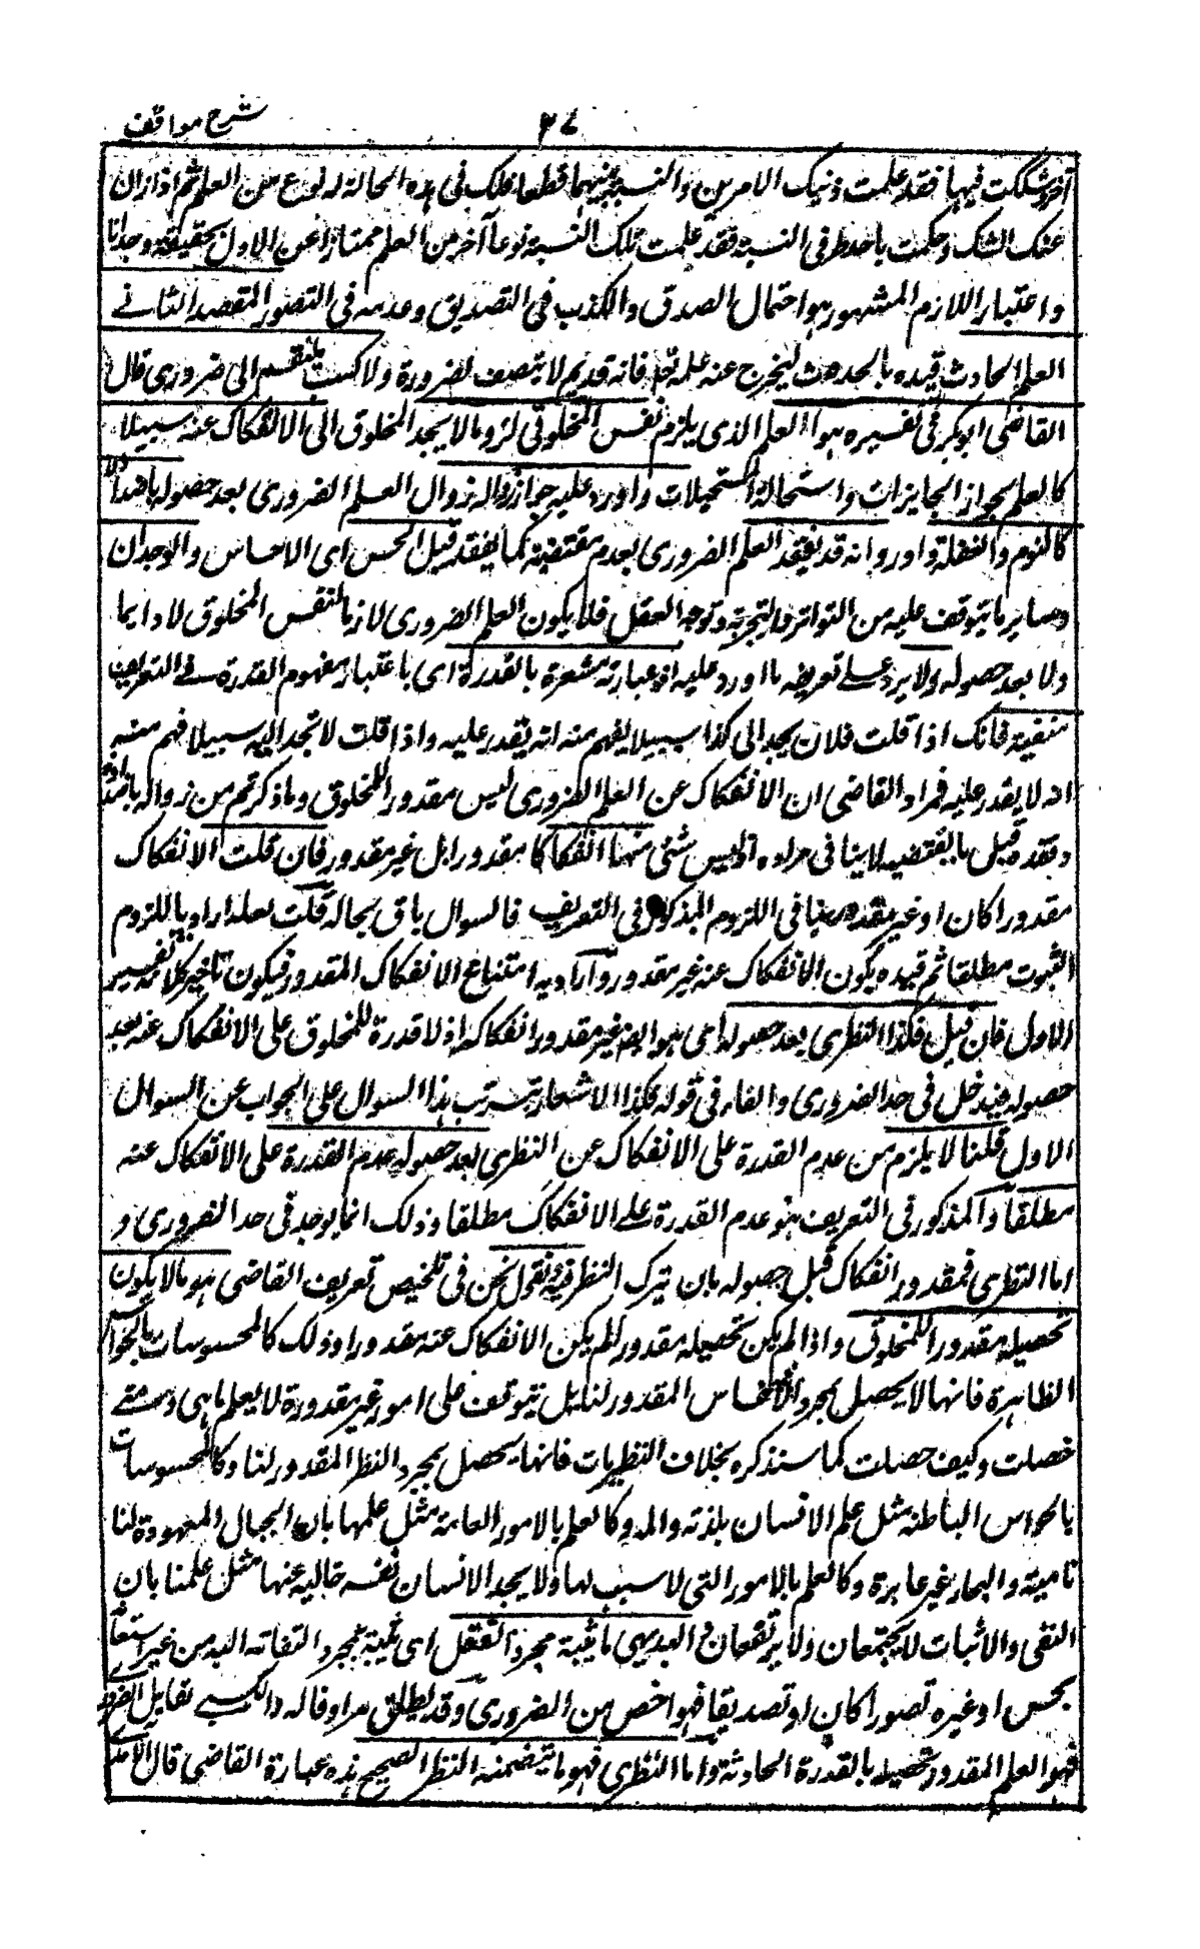 شرح مواقف
٢٧
آخر وشككت فيها فقد علمت ذينك الامرين والنسبة بينهما قطعا فلك فى هذه الحالة له نوع من العلم ثم اذا زال
عنك الشك وحكمت باحد طرفى النسبة فقد علمت تلك النسبة نوعا آخر من العلم ممتازا عن الاول بحقيقته وجدانا
واعتبار اللازم المشهور هو احتمال الصدق والكذب فى التصديق وعدمه فى التصور المقصد الثانے
العلم الحادث قيده بالحدوث ليخرج عنه علمه تعالى فانه قديم لا يتصف بضرورة ولا كسب ينقسم الى ضرورى قال
القاضى ابو بكر فى تفسيره هو العلم الذى يلزم نفس المخلوق لزوما لا يجد المخلوق الى الانفكاك عنه سبيلا
كالعلم بجواز الجايزات واستحالة المستحيلات واورد عليه جواز زواله زوال العلم الضرورى بعد حصوله باضداده
كالنوم والغفلة واورد انه قد يفقد العلم الضرورى بعدم مقتضيه كما يفقد قبل الحس اى الاحساس والوجدان
وساير ما يتوقف عليه من التواتر والتجربة وتوجه العقل فلا يكون العلم الضرورى لازما لنفس المخلوق لا دايما
ولا بعد حصوله ولا يرد علے تعريفه ما اورد عليه اذ عبارته مشعرة بالقدرة اى باعتبار مفهوم القدرة فے التعريف
منفية فانك اذا قلت فلان يجد الى كذا سبيلا يفهم منه انه يقدر عليه واذا قلت لا تجد اليه سبيلا فهم منه
انه لا يقدر عليه فمراد القاضى ان الانفكاك عن العلم الضرورى ليس مقدورا للمخلوق وما ذكرتم من زواله باضداده
وفقده قبل ما يقتضيه لا ينافى مراده اذ ليس شئ منهما انفكاكا مقدورا بل غير مقدور فان قلت الانفكاك
مقدورا كان او غير مقدور ينافى اللزوم المذكور فى التعريف فالسوال باق بحاله قلت لعله اراد باللزوم
الثبوت مطلقا ثم قيده بكون الانفكاك عنه غير مقدور او اراد به امتناع الانفكاك المقدور فيكون تاخير كلامه تفسير
الاول فان قيل فكذا النظرى بعد حصوله اى هو ايضا غير مقدور انفكاكه اذ لا قدرة للمخلوق على الانفكاك عنه بعد
حصوله فيدخل فى حد الضرورى والفاء فى قوله فكذا الاشعار بترتب هذا السوال على الجواب عن السوال
الاول قلنا لا يلزم من عدم القدرة على الانفكاك عن النظرى بعد حصوله عدم القدرة على الانفكاك عنه
مطلقا والمذكور فى التعريف هو عدم القدرة علے الانفكاك مطلقا وذلك انما يوجد فى حد الضرورى و
اما النظرى فمقدور انفكاك قبل حصوله بان يترك النظر فيه ونقول نحن فى تلخيص تعريف القاضى هو ما لا يكون
تحصيله مقدورا للمخلوق واذا لم يكن تحصيله مقدورا لم يكن الانفكاك عنه مقدورا وذلك كالمحسوسات بالحواس
الظاهرة فانها لا يحصل بمجرد الاحساس المقدور لنا بل يتوقف على امور غير مقدورة لا يعلم ما هى ومتے
حصلت وكيف حصلت كما سنذكره بخلاف النظريات فانها يحصل بمجرد النظر المقدور لنا وكالمحسوسات
بالحواس الباطنة مثل علم الانسان بلذته والمه وكالعلم بالامور العادية مثل علمنا بان الجبال المعهودة لنا
ثابتة والبحار غير غايرة وكالعلم بالامور التى لا سبب لها ولا يجد الانسان نفسه خالية عنها مثل علمنا بان
النفى والاثبات لا يجتمعان ولا يرتفعان والبديهى ما يثبته مجرد العقل اى يثبته بمجرد التفاته اليه من غير استعانة
بحس او غيره تصورا كان او تصديقا فهو اخص من الضرورى وقد يطلق مرادفا له والكسبے يقابل الضرورى
فهو العلم المقدور تحصيله بالقدرة الحادثة واما النظرى فهو ما يتضمنه النظر الصحيح هذه عبارة القاضى قال الامدى